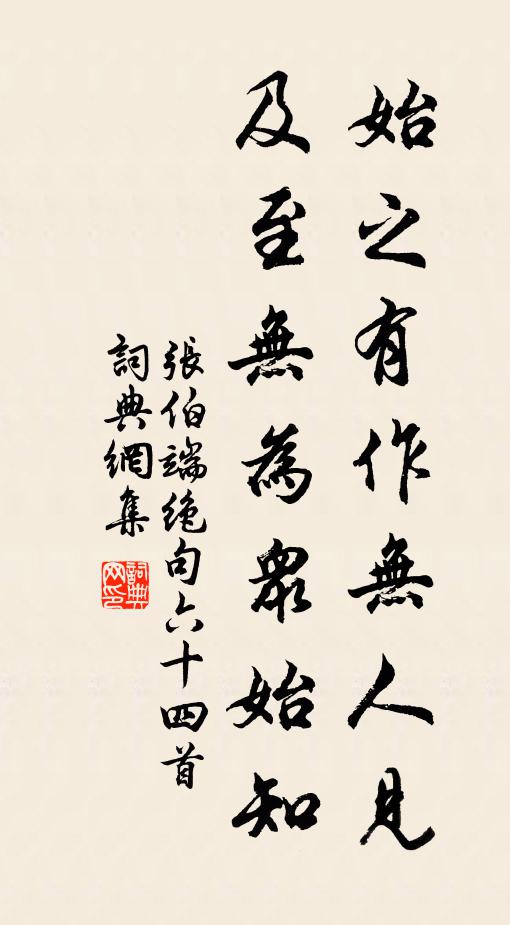 始之有作無人見
及至無為眾始知
張伯端絶句六十四首
詞典網集
詞典
网印